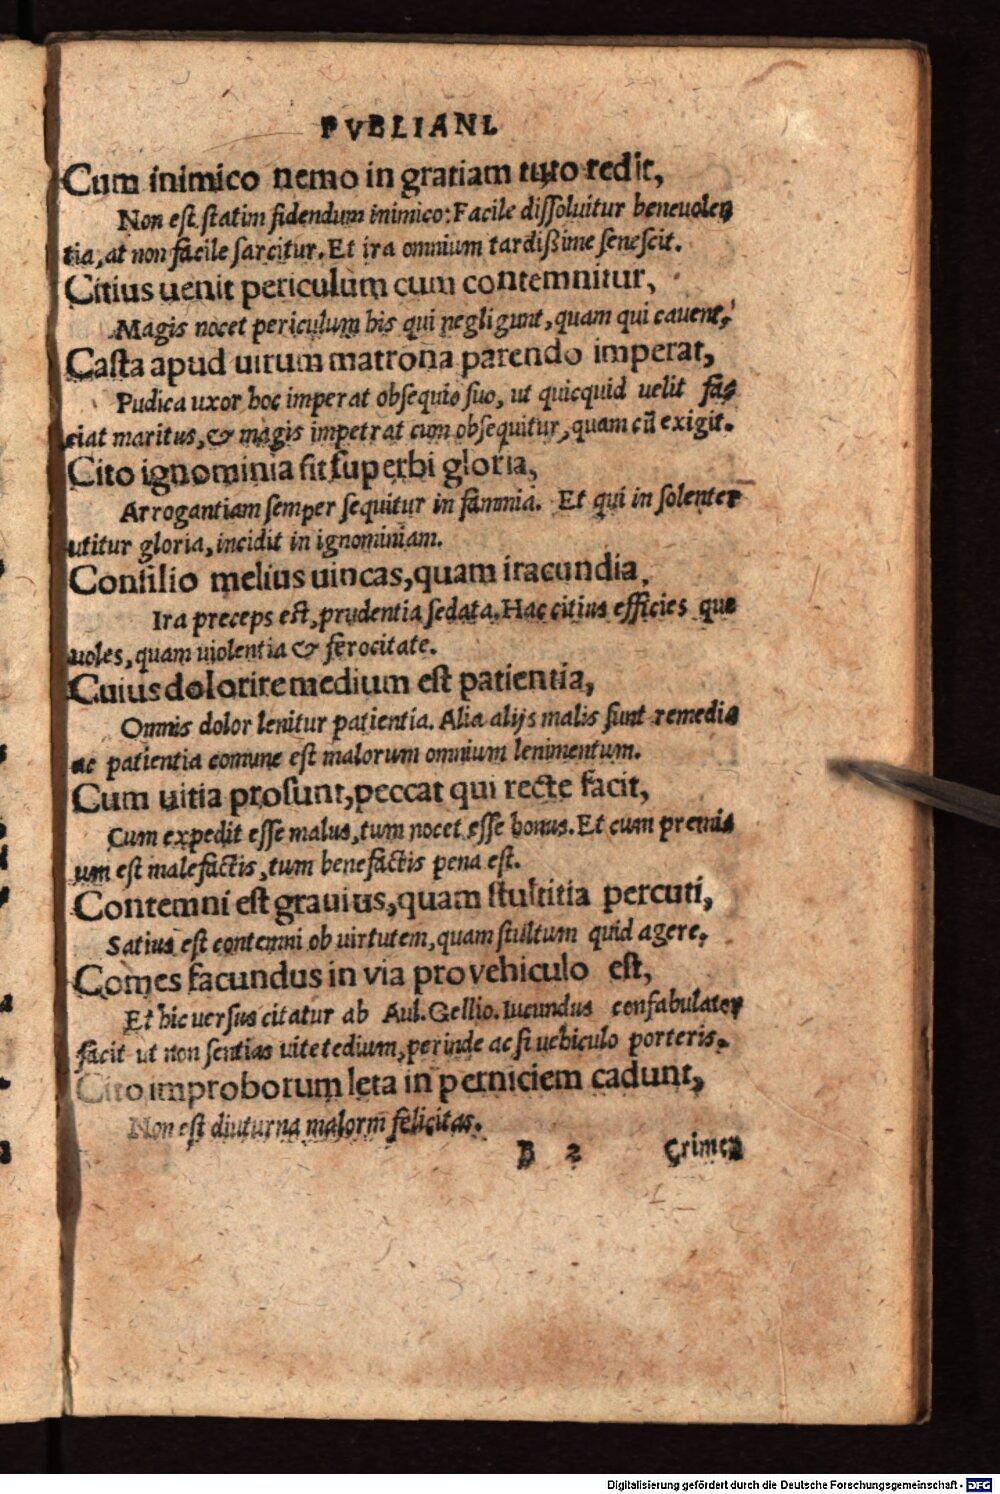 PVBLIANI.
Cum inimico nemo in gratiam tuto redit,
Non est statim fidendum inimico: Facile dissoluitur beneuolen
tia, at non facile sarcitur. Et ira omnium tardißime senescit.
Citius uenit periculum cum contemnitur,
Magis nocet periculum his qui negligunt, quam qui cauent,
Casta apud uirum matrona parendo imperat,
Pudica uxor hoc imperat obsequio suo, ut quicquid uelit fa,
ciat maritus, & magis impetrat cum obsequitur, quam cū exigit.
Cito ignominia fit superbi gloria,
Arrogantiam semper sequitur in fammia. Et qui in solenter
utitur gloria, incidit in ignominiam.
Consilio melius uincas, quam iracundia.
Ira preceps est, prudentia sedata. Hac citius efficies que
uoles, quam uiolentia & ferocitate.
Cuius dolori remedium est patientia,
Omnis dolor lenitur patientia. Alia alijs malis sunt remedia
ac patientia comune est malorum omnium lenimentum.
Cum uitia prosunt, peccat qui recte facit,
Cum expedit esse malus, tum nocet esse bonus. Et cum premi
um est malefactis, tum benefactis pena est.
Contemni est grauius, quam stultitia percuti,
Satius est contemni ob uirtutem, quam stultum quid agere.
Comes facundus in via pro vehiculo est,
Et hic uersus citatur ab Aul. Gellio. Iucundus confabulator
facit ut non sentias uite tedium, perinde ac si uehiculo porteris.
Cito improborum leta in perniciem cadunt,
Non est diuturna malorm felicitas.
B 2 Crimen
Digitalisierung gefördert durch die Deutsche Forschungsgemeinschaft - DFG